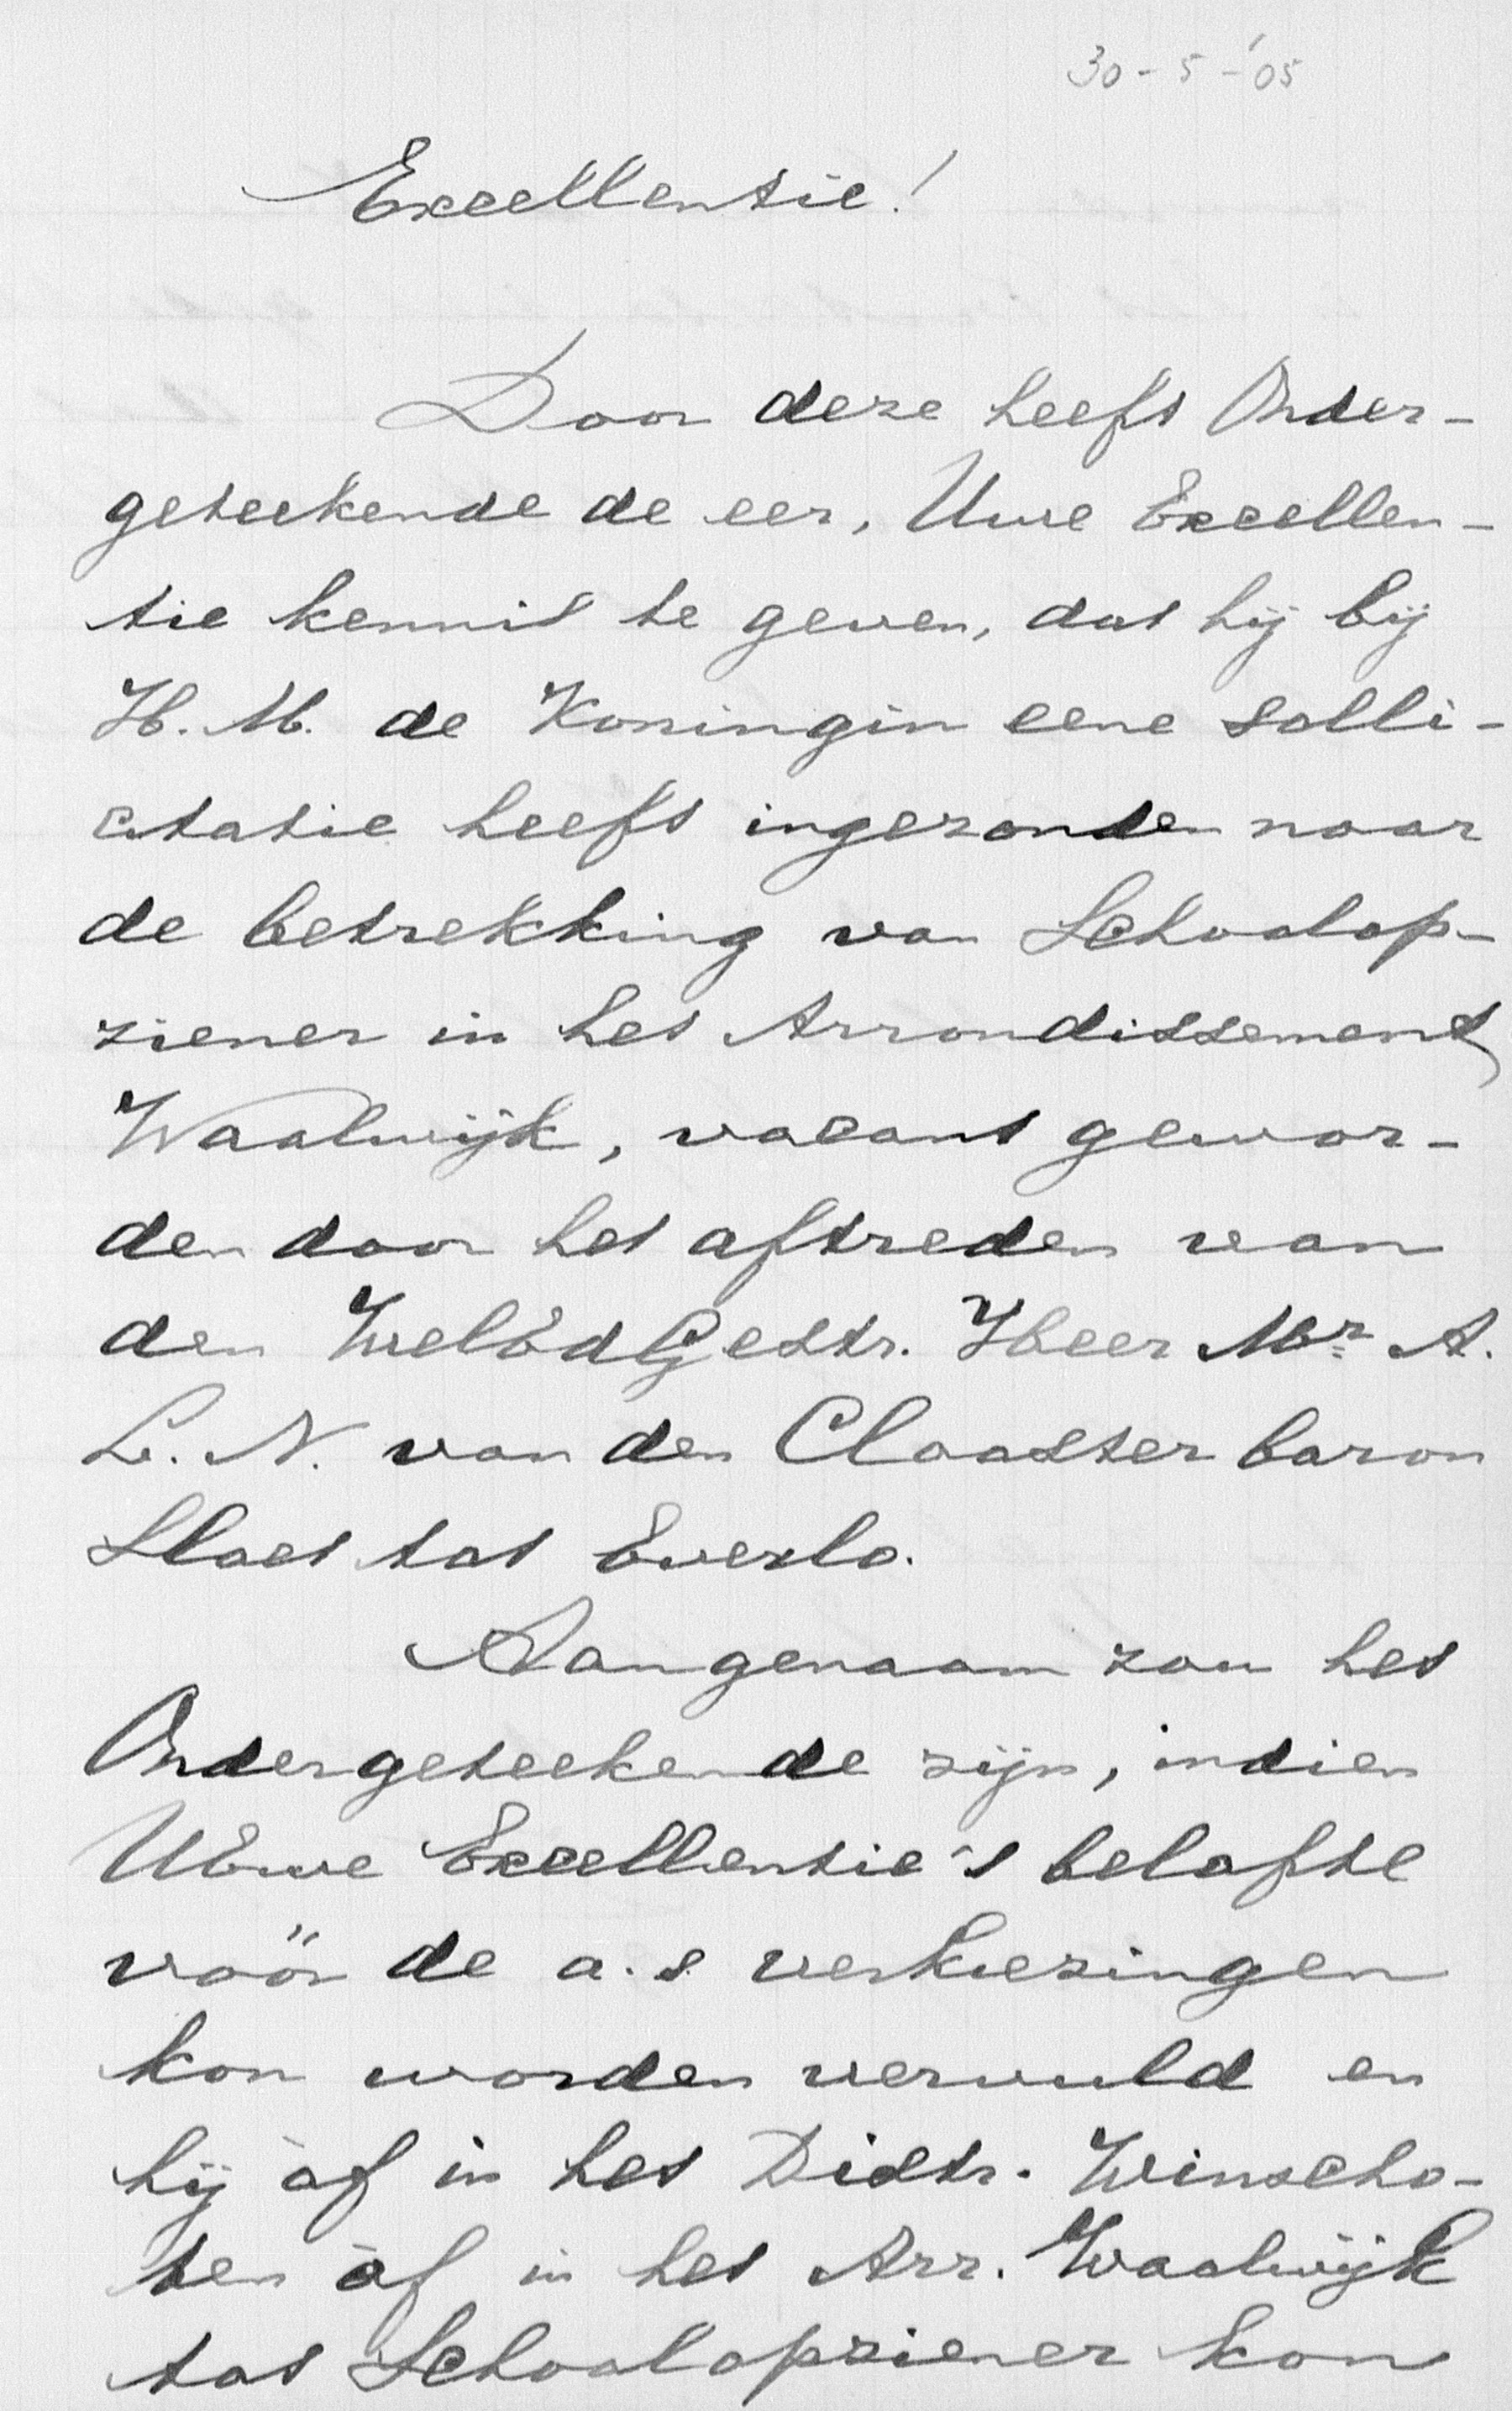 30-5-'05
Excellentie!
Door deze heeft Onder-
geteekende de eer, Uwe Excellen-
tie kennis te geven, dat hij bij
H. M. de Koningin eene solli-
citatie heeft ingezonden naar
de betrekking van Schoolop-
ziener in het Arrondissement
Waalwijk, vacant gewor-
den door het aftreden van
den WelEdGestr. Heer Mr. A.
L. N. van den Claaster baron
Sloet tot Everlo.
Aangenaam zou het
Ondergeteekende zijn, indien
UEwe Excellentie's belofte
vóór de a.s. verkiezingen
kon worden vervuld en
hij òf in het Distr. Winscho-
ten òf in het Arr. Waalwijk
tot Schoolopziener kon